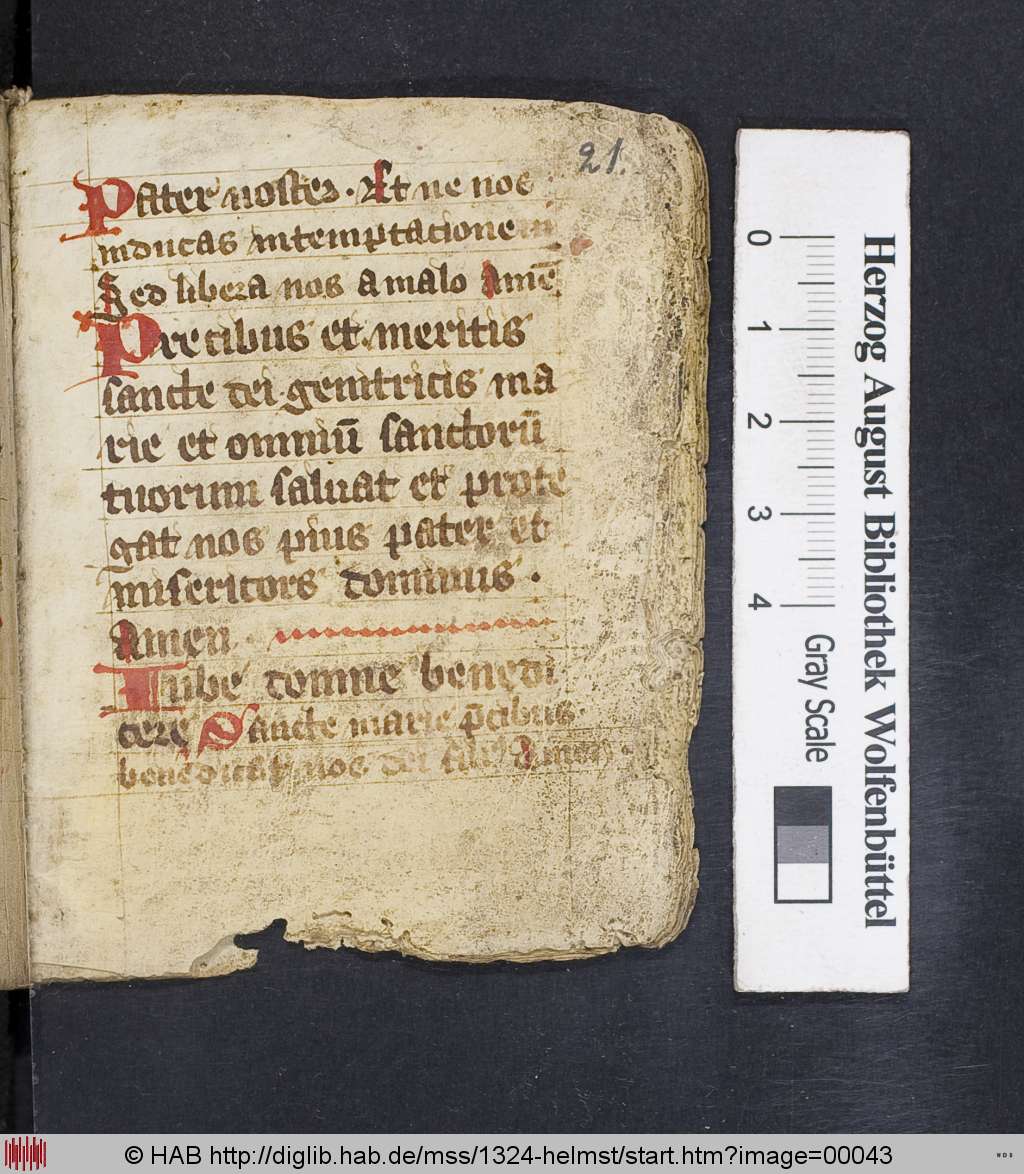 21.
Pater noster. Et ne nos
inducas in temptationem
Sed libera nos a malo Amē
Precibus et meritis
sancte dei genitricis ma
rie et omniū sanctorū
tuorum saluat et prote
gat nos pius pater et
misericors dominus.
Amen
Iube domne benedi
cere Sancte marie p̄cibus
benedicat nos dei filiꝰ Amen
0 1 2 3 4
Gray Scale
Herzog August Bibliothek Wolfenbüttel
© HAB http://diglib.hab.de/mss/1324-helmst/start.htm?image=00043
WDB